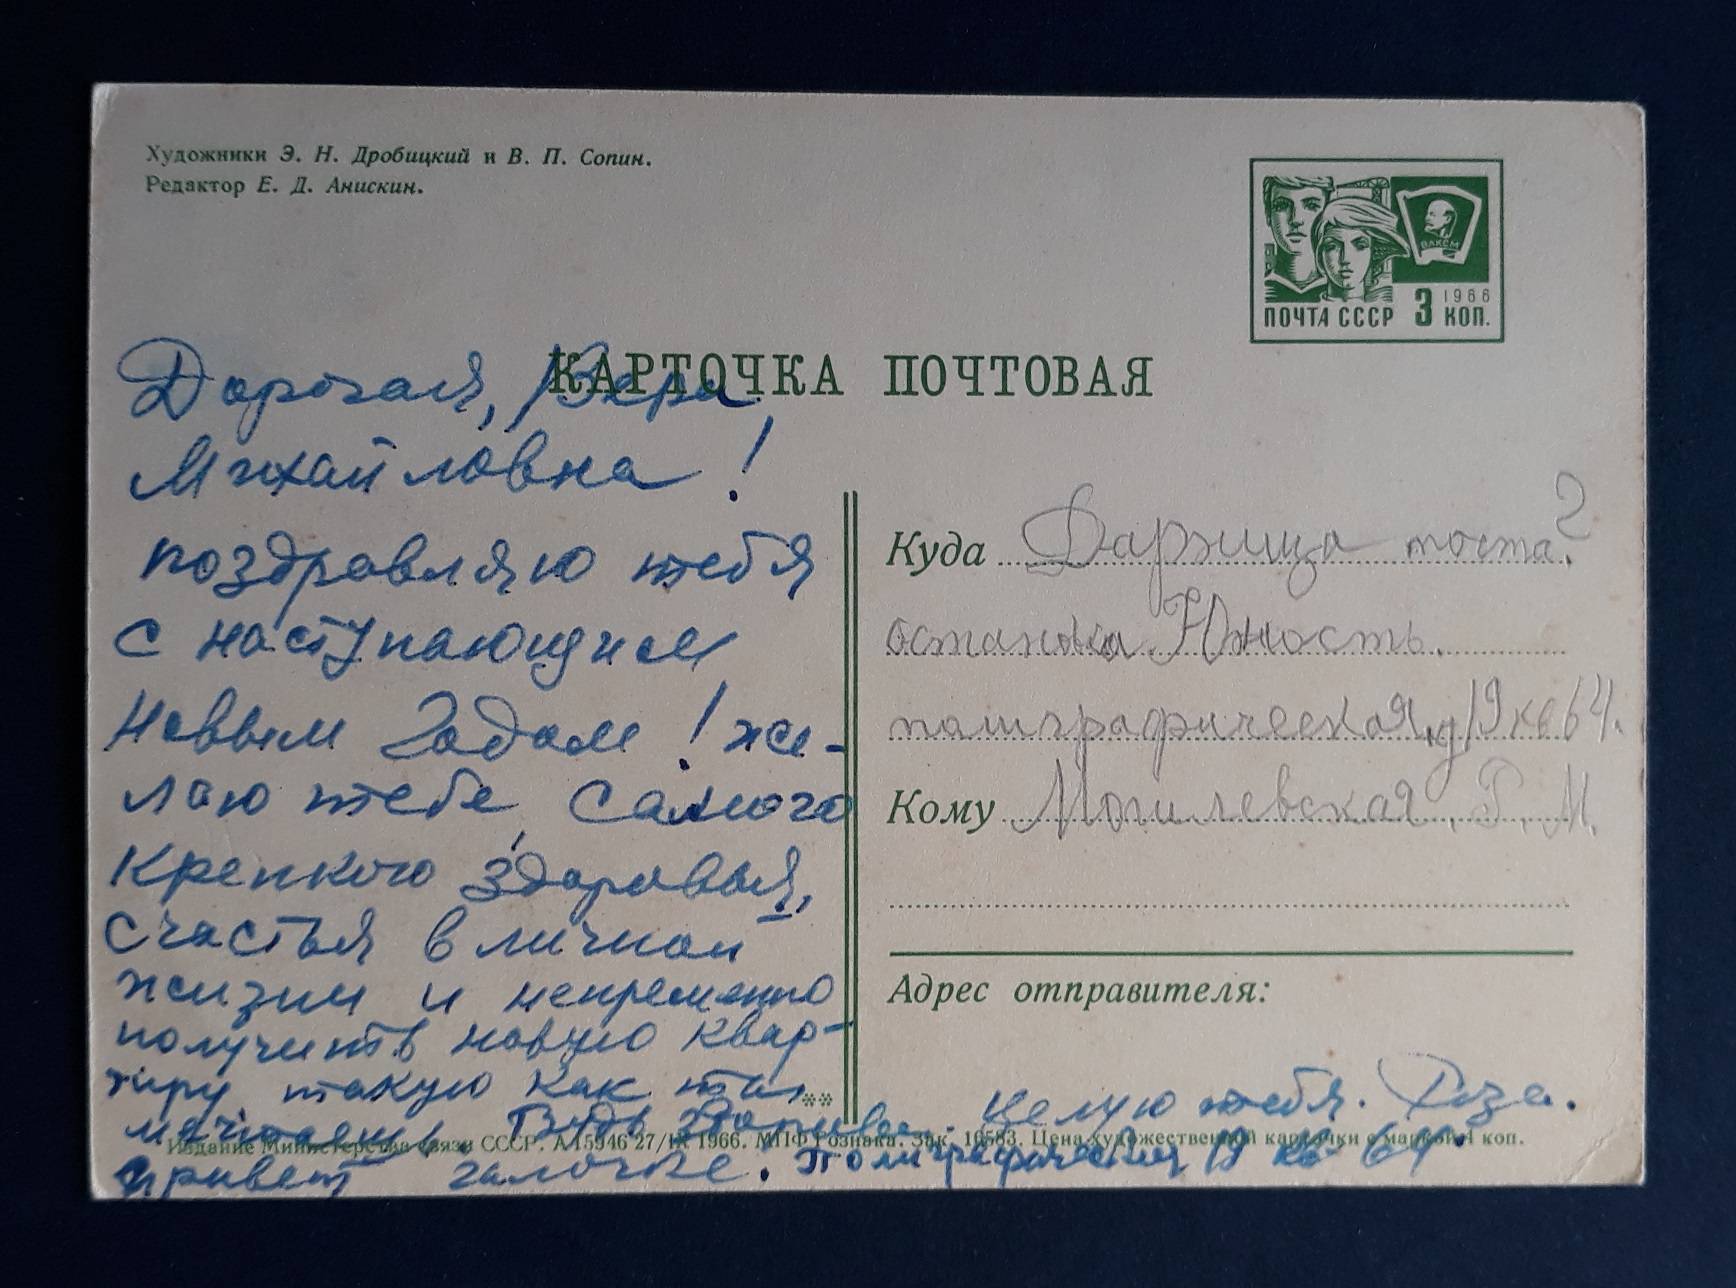 Художники Э. Н. Дробицкий и В. П. Сопин.
Редактор Е. Д. Анискин.
ВЛКСМ
1966
ПОЧТА СССР 3 КОП.
КАРТОЧКА ПОЧТОВАЯ
Дорогая, Вера
Михайловна!
поздравляю тебя
с наступающим
Новым Годом! же-
лаю тебе самого
крепкого здоровья,
счастья в личной
жизни и непременно
получить новую квар-
тиру такую как ты
мечтаешь. Будь здорова. целую тебя. Роза.
привет галочке. Полиграфическая 19 кв 64
Куда Дарница
остановка Юность.
полиграфическая, д 19 кв 64.
Кому Могилевская. Р. М.
Адрес отправителя:
Издание Министерства связи СССР. А 15946 27/IX 1966. МПФ Гознака. Зак. 16583. Цена художественной карточки с маркой 4 коп.